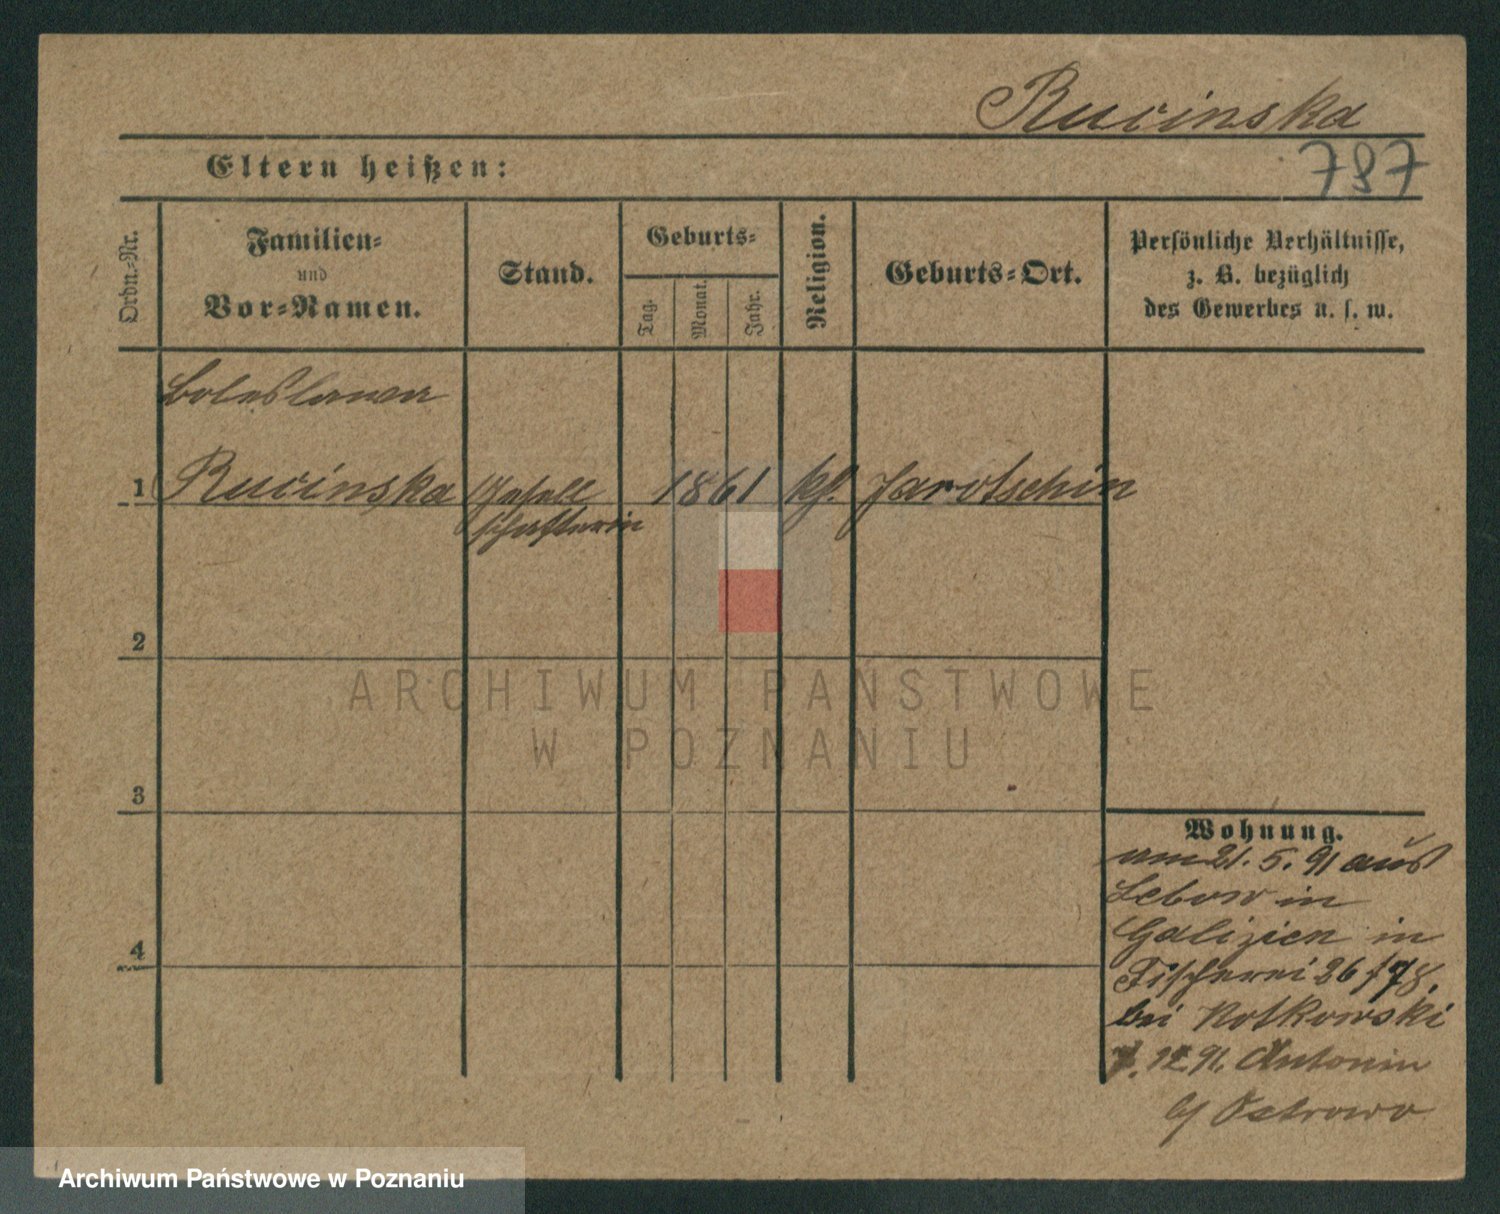 Rucinska
Eltern heißen:
787
Ordn.-Nr.
Familien-
und
Vor-Namen.
Stand.
Geburts-
Tag.
Monat.
Jahr.
Religion.
Geburts-Ort.
Persönliche Verhältnisse,
z. B. bezüglich
des Gewerbes u. s. w.
Boleslawa
1 Rucinska Gesell 1861 kh. Jarotschin
schafterin
2
ARCHIWUM PAŃSTWOWE
W POZNANIU
3
Wohnung.
am 21. 5. 91 aus
Lebow in
Galizien in
4
Fischerei 26
bei Kotkowski
7. 12. 91. Antonin
b/ Ostrowo
Archiwum Państwowe w Poznaniu